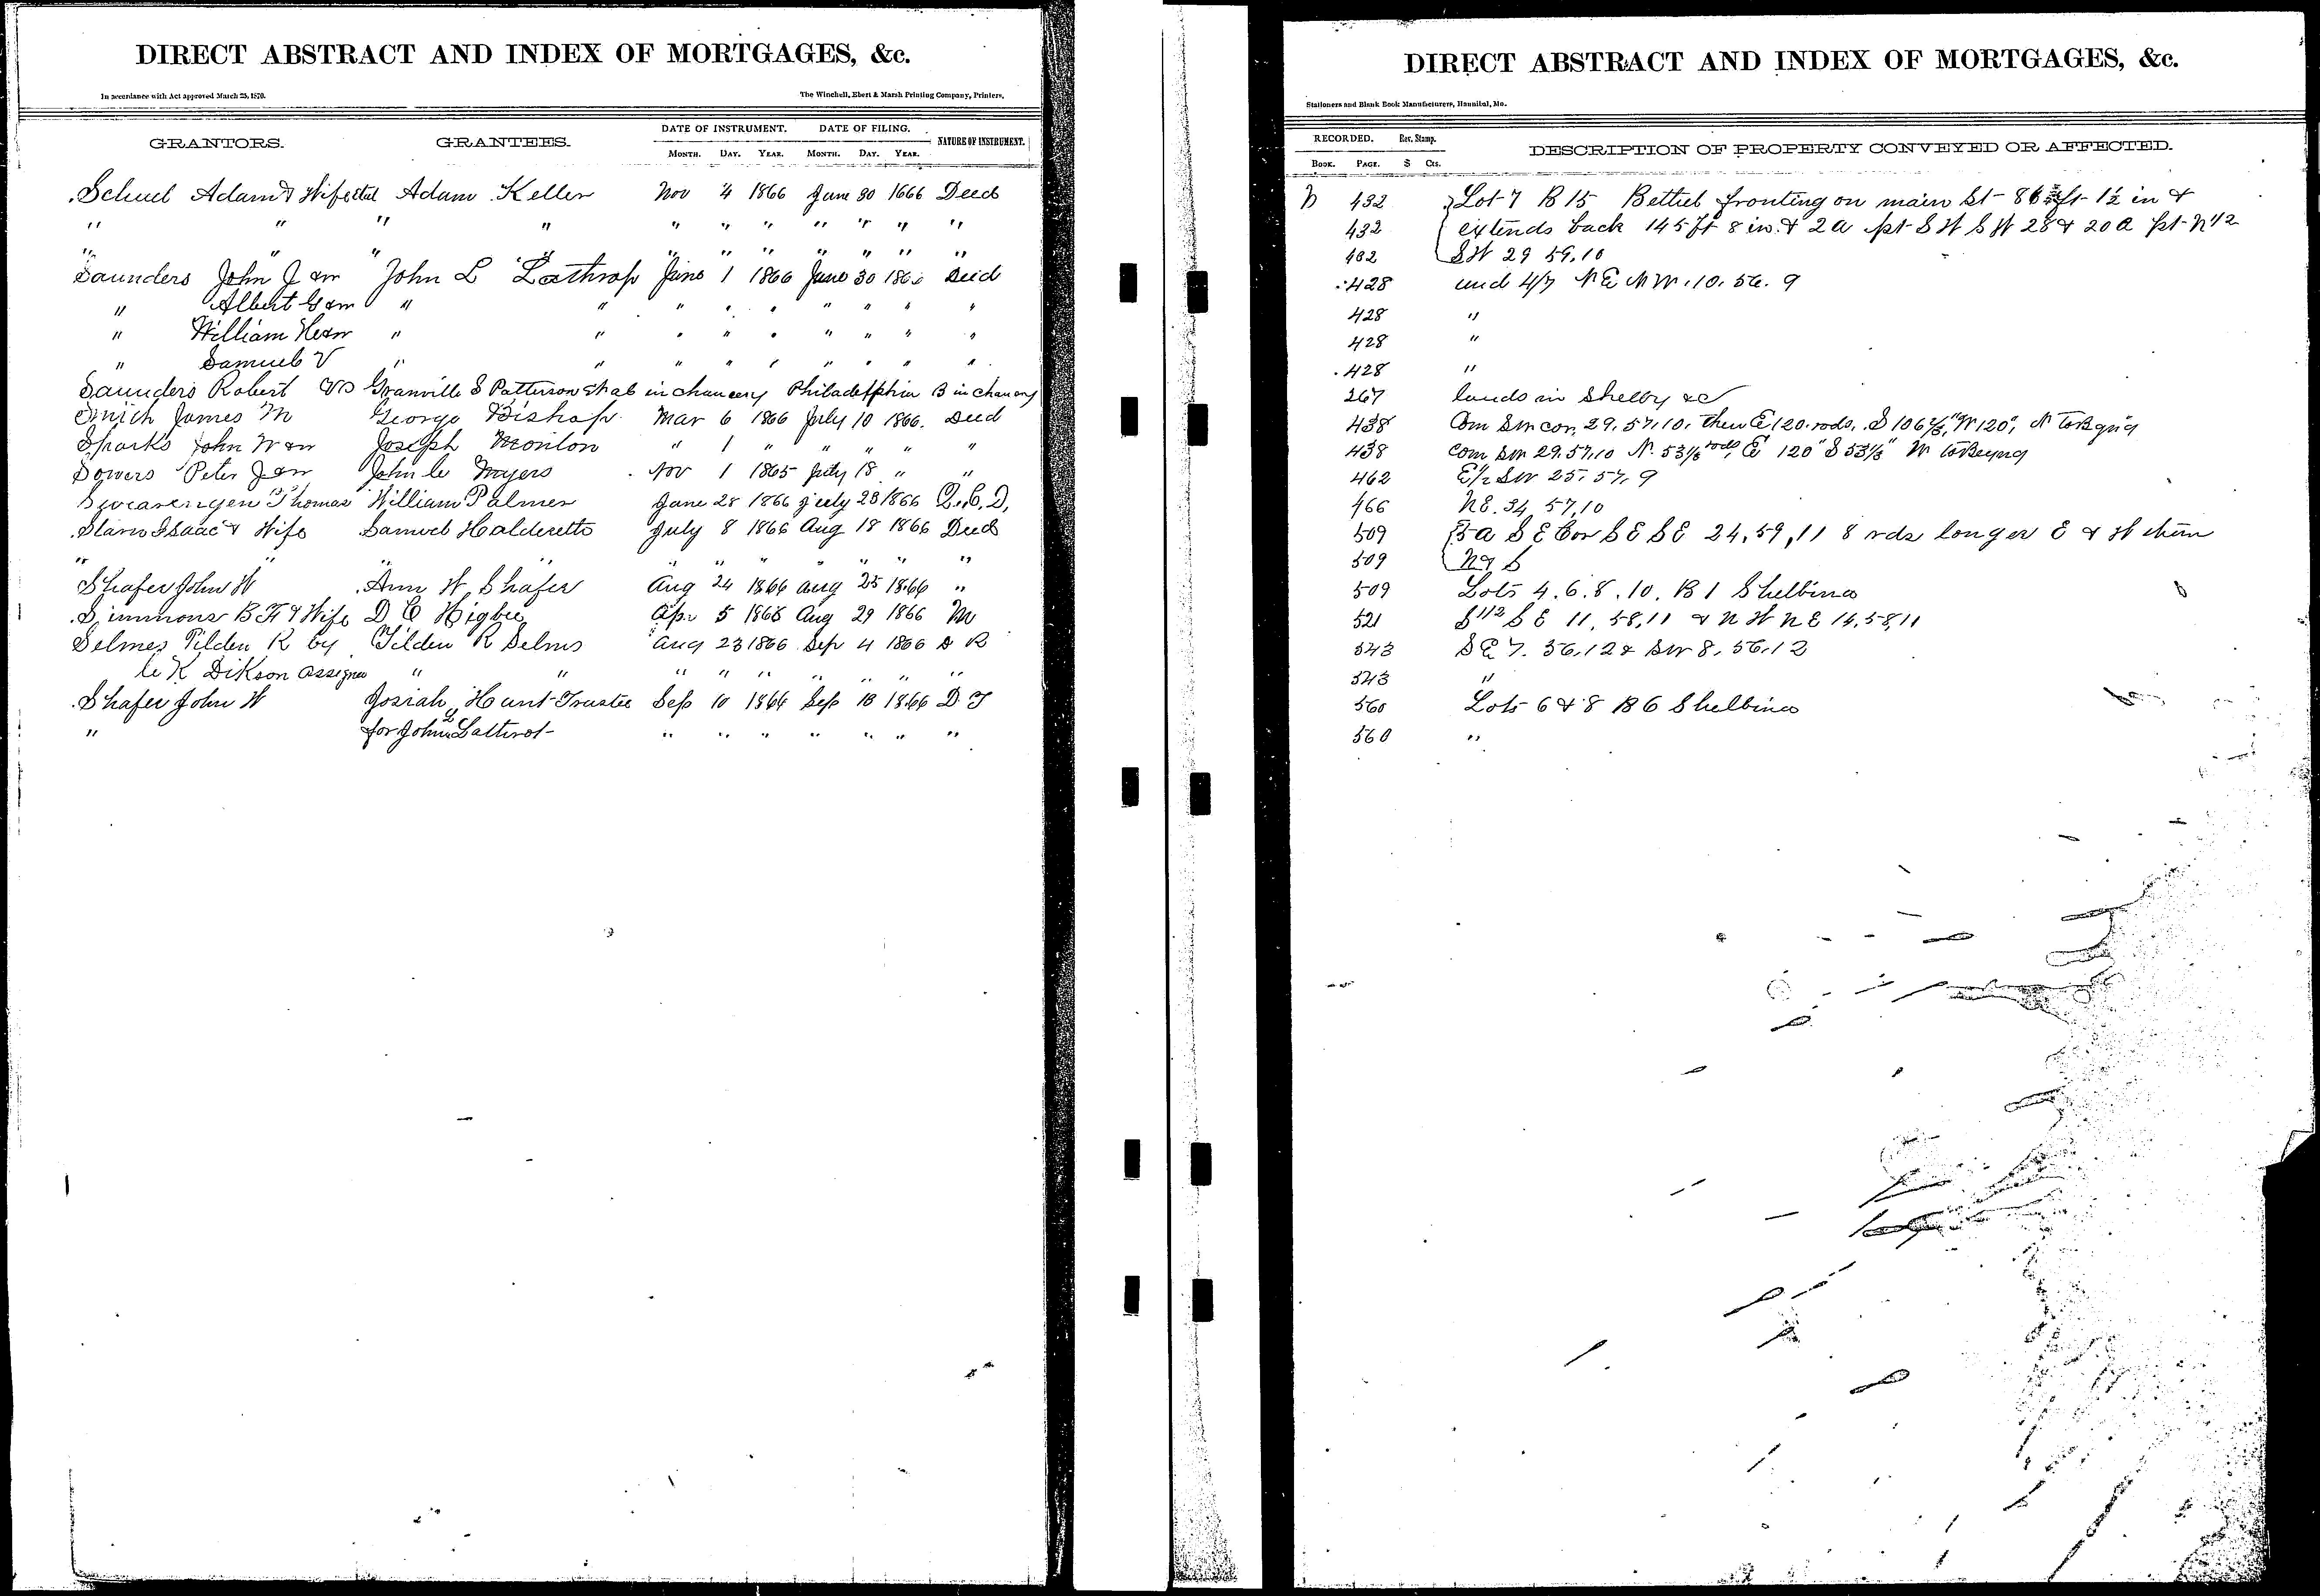 DIRECT ABSTRACT AND INDEX OF MORTGAGES, &c.
In accordance with Act approved March 25, 1870.
The Winchell, Ebert & Marsh Printing Company, Printers,
GRANTORS. GRANTEES. DATE OF INSTRUMENT. DATE OF FILING. NATURE OF INSTRUMENT.
MONTH. DAY. YEAR. MONTH. DAY. YEAR.
Adam & Wife Adam Keller Nov 4 1866 June 30 1666 Deed
" " " " " " " " " " "
" " " " " " " " " " "
Saunders John J John L Lathrop June 1 1866 June 30 1866 Deed
" Albert " " " " " " " " "
" William " " " " " " " " "
" Samuel V " " " " " " " " "
Saunders Robert vs Granville S Patterson et al in chancery Philadelphia B in chancery
James M George Bishop Mar 6 1866 July 10 1866. Deed
Sparks John W Joseph " 1 " " " " "
Sowers Peter J John C Myers Nov 1 1865 July 18 " "
Swearengen Thomas William Palmer June 28 1866 July 23 1866 Q.C.D,
Isaac & Wife Samuel July 8 1866 Aug 18 1866 Deed
" " " " " " " " "
Shafer John W Ann W Shafer Aug 24 1866 Aug 25 1866 "
Simmons B F & Wife D C Higbee Apr 5 1866 Aug 29 1866 M
Selmes Tilden R by Tilden R Selms Aug 23 1866 Sep 4 1866 D R
C K Dikson Assignee " " " " " " " " "
Shafer John W Josiah Hunt Trustee Sep 10 1866 Sep 13 1866 D T
" for John " " " " " " "
DIRECT ABSTRACT AND INDEX OF MORTGAGES, &c.
Stationers and Blank Book Manufacturers, Hannibal, Mo.
RECORDED. Rev. Stamp. DESCRIPTION OF PROPERTY CONVEYED OR AFFECTED.
BOOK. PAGE. $ Cts.
N 432 Lot 7 B 15 Bethel fronting on main St 86 ft 1½ in &
432 extends back 145 ft 8 in. & 2 a pt S W S W 28 & 20 a pt N 1/2
432 S W 29 59.10
428 und 4/7 N E N W. 10. 56. 9
428 "
428 "
428 "
267 lands in Shelby &c
438 Com S W cor, 29. 57. 10. then E 120. rods. S 106 2/3 " W 120", N to Begng
438 Com S W 29. 57. 10 N. 53 1/3 rods, E 120" S 53 1/3" W to Beging
462 E 1/2 S W 25. 57. 9
466 N E. 34, 57, 10
509 5 a S E Cor S E S E 24, 59, 11 8 rds longer E & W than
509 N & S
509 Lots 4. 6. 8. 10. B 1 Shelbina
521 S 1/2 S E 11, 58, 11 & N W N E 14, 58, 11
543 S E 7. 56. 12 & S W 8. 56. 12
543 "
560 Lots 6 & 8 B 6 Shelbina
560 "